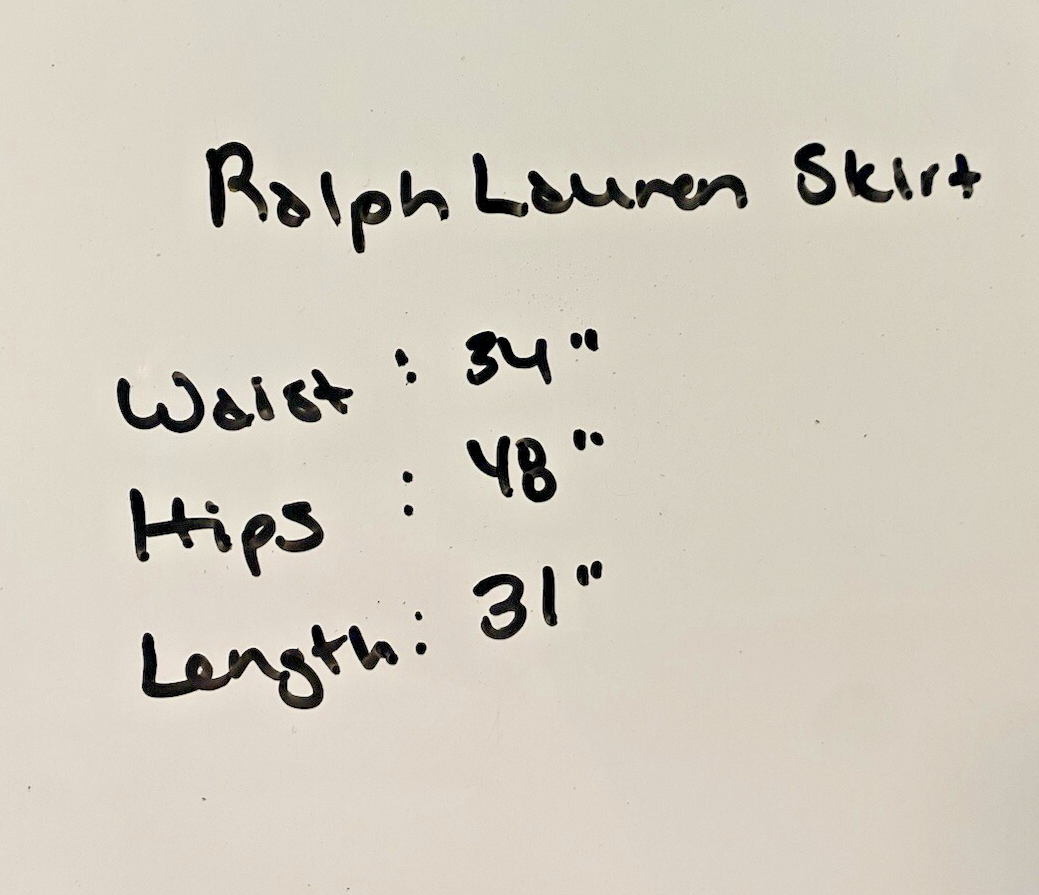 Ralph Lauren Skirt
Waist : 34"
Hips : 48"
Length: 31"